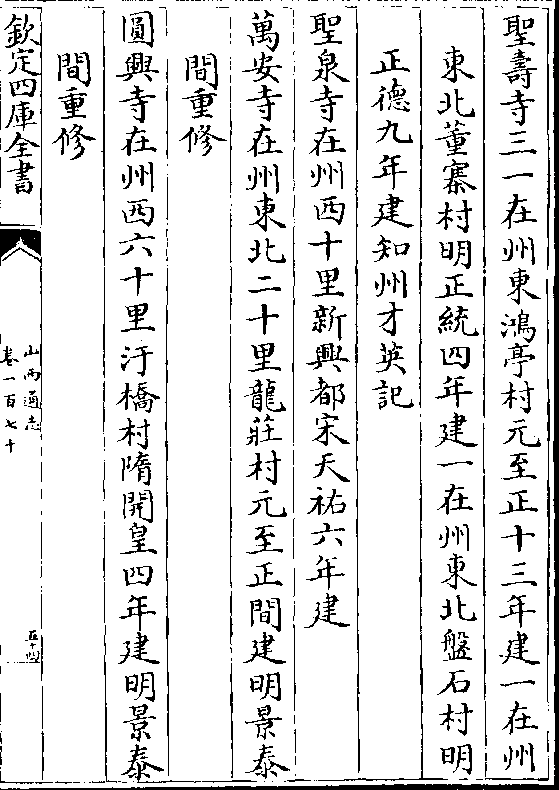 聖壽寺三一在州東鴻亭村元至正十三年建一在州
東北董寨村明正統四年建一在州東北盤石村明
正德九年建知州才英記
聖泉寺在州西十里新興都宋天祐六年建
萬安寺在州東北二十里龍莊村元至正間建明景泰
間重修
圓興寺在州西六十里汙橋村隋開皇四年建明景泰
間重修
欽定四庫全書
山西通志
卷一百七十
五十四